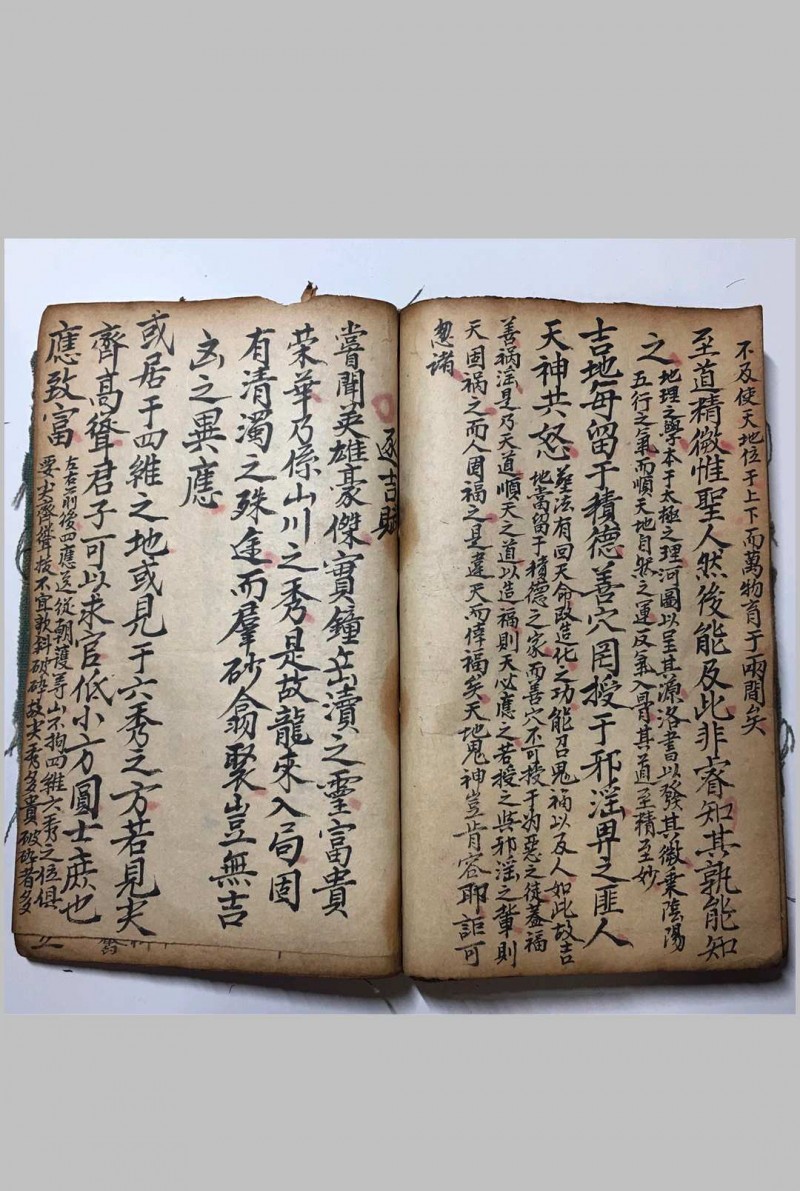 不及使天地位于上下而萬物育于兩間矣
至道精微惟聖人然後能及此非睿知其孰能知
之
地理之學本于太極之理河圖以呈其源洛書以發其微乘陰陽
五行之氣而順天地自然之運反氣入骨其道至積至妙
吉地每留于積德善穴罔授于邪淫畀之匪人
天神共怒
葬法有回天命改造化之功能召鬼禍以及人如此故吉
地高留于積德之家而善穴不可授于为惡之徒蓋福
善祸淫是乃天道順天之道以造福則天必應之若授之與邪淫之輩則
天固祸之而人固福之是違天而倖福矣天地鬼神豈肯容耶詎可
忽諸
逐吉賦
嘗聞英雄豪傑實鐘岳瀆之𩆜富貴
荣華乃係山川之秀是故龍來入局固
有清濁之殊途而羣砂翕聚豈無吉
凶之異應
或居于四維之地或見于六秀之方若見尖
齊高聳君子可以求官低小方圓士庶也
應致富
左右前後四應送從朝護等山不拘四維六秀之位俱
要尖齊聳拔不宜欹斜破碎故尖秀多貴破碎者多